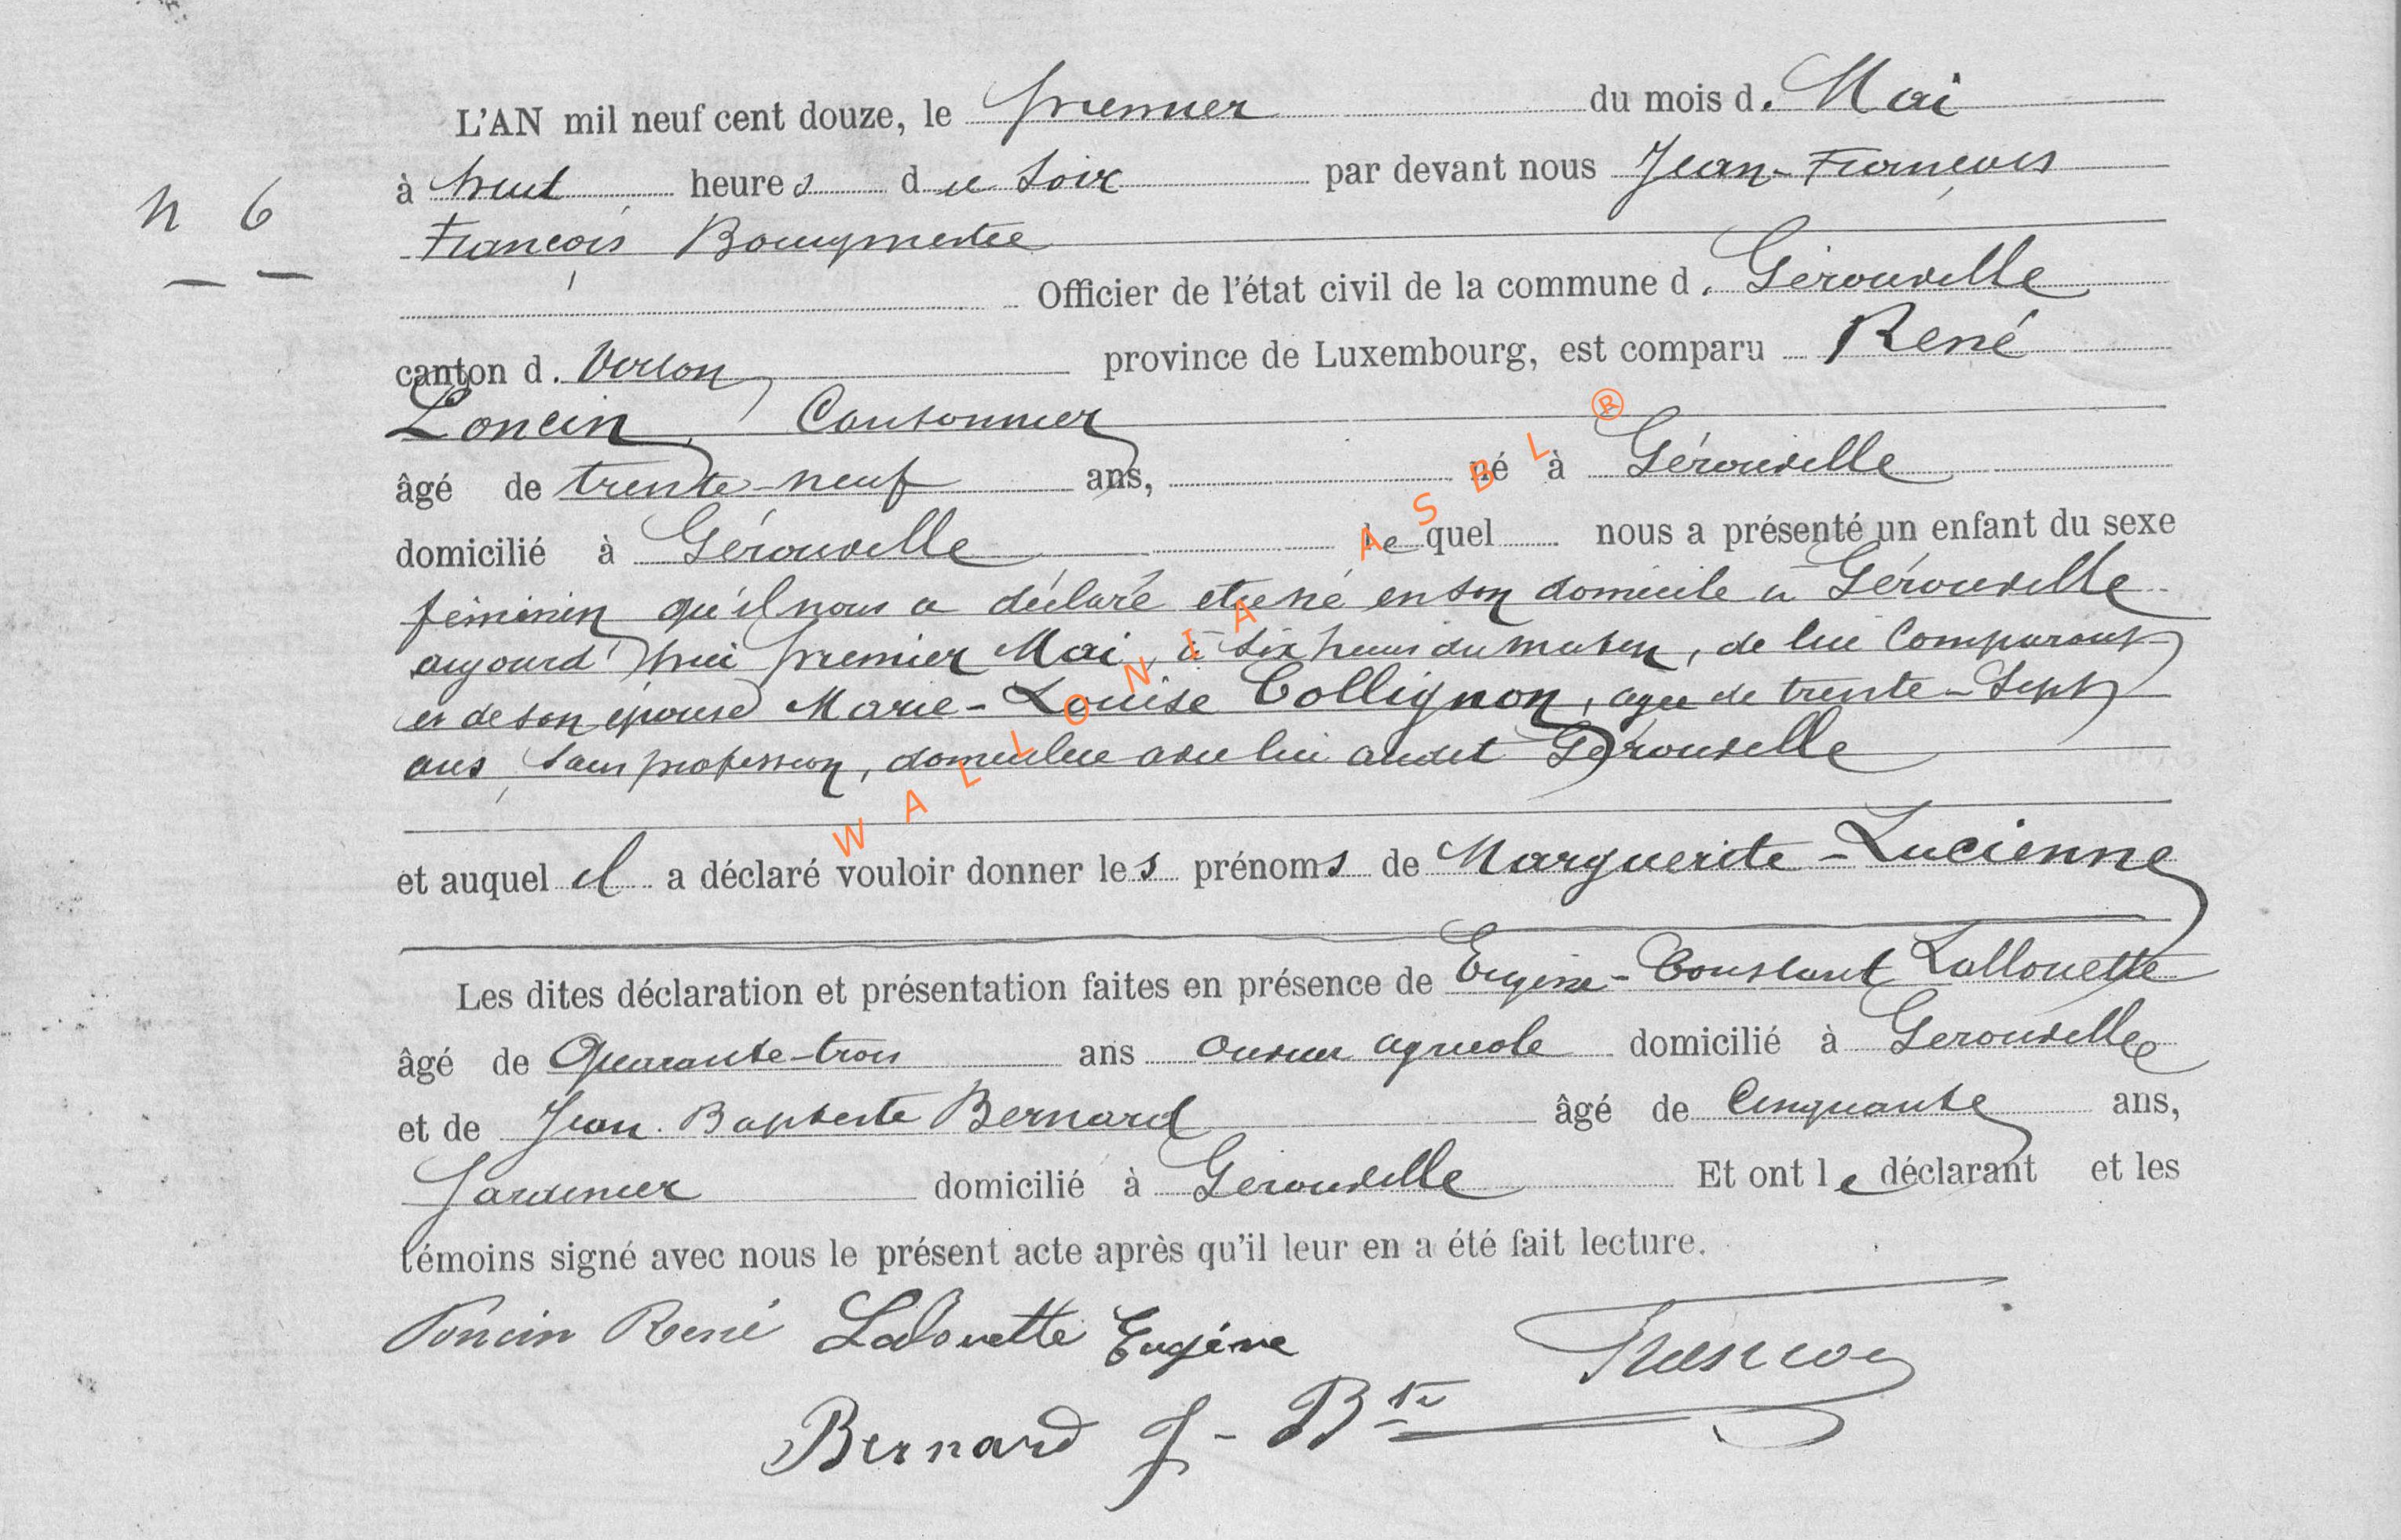 L'AN mil neuf cent douze, le premier du mois d. Mai
à huit heures du soir par devant nous Jean-François
N 6
François Bourgmestre
Officier de l'état civil de la commune d. Gérouville
canton d. Virton province de Luxembourg, est comparu René
Loncin, Cantonnier
âgé de trente-neuf ans, né à Gérouville
domicilié à Gérouville lequel nous a présenté un enfant du sexe
féminin qu'il nous a déclaré être né en son domicile à Gérouville
aujourd'hui premier Mai, à six heures du matin, de lui Comparant
et de son épouse Marie-Louise Collignon, agée de trente-sept
ans, sans profession, domiciliée avec lui audit Gérouville
et auquel il a déclaré vouloir donner les prénoms de Marguerite-Lucienne
Les dites déclaration et présentation faites en présence de Eugène-Constant Lallouette
âgé de Quarante-trois ans ouvrier agricole domicilié à Gerouville
et de Jean-Baptiste Bernard âgé de Cinquante ans,
Jardinier domicilié à Gerouville Et ont le déclarant et les
témoins signé avec nous le présent acte après qu'il leur en a été fait lecture.
Loncin René Lalouette Eugéne
Bernard J-Bte
WALLONIA ASBL ®